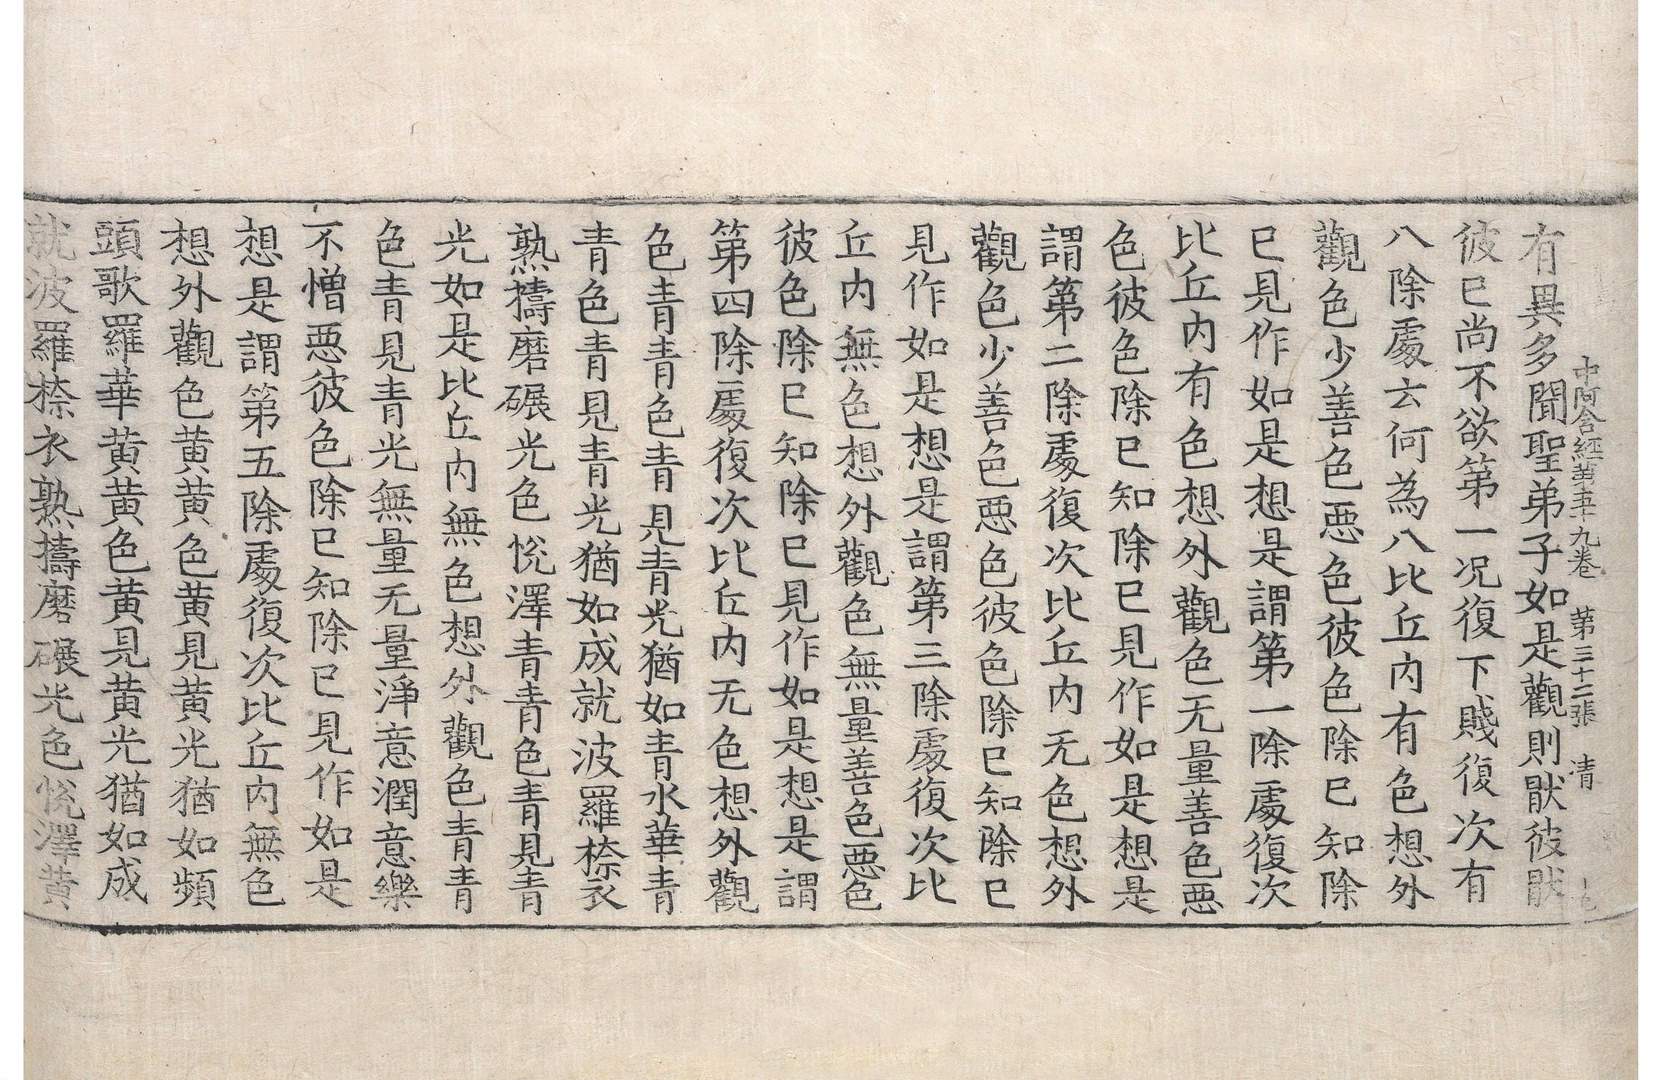 中阿含經第五十九卷　第三十二張　清
有異多聞聖弟子如是觀則猒彼猒
彼已尚不欲第一况復下賤復次有
八除處云何為八比丘内有色想外
觀色少善色惡色彼色除已知除
已見作如是想是謂第一除處復次
比丘内有色想外觀色无量善色惡
色彼色除已知除已見作如是想是
謂第二除處復次比丘内无色想外
觀色少善色惡色彼色除已知除已
見作如是想是謂第三除處復次比
丘内無色想外觀色無量善色惡色
彼色除已知除已見作如是想是謂
第四除處復次比丘内无色想外觀
色青青色青見青光猶如青水華青
青色青見青光猶如成就波羅㮈衣
熟擣磨碾光色悅澤青青色青見青
光如是比丘内無色想外觀色青青
色青見青光無量无量淨意潤意樂
不憎惡彼色除已知除已見作如是
想是謂第五除處復次比丘内無色
想外觀色黄黄色黄見黄光猶如頻
頭歌羅華黄黄色黄見黄光猶如成
就波羅㮈衣熟擣磨碾光色悅澤黄